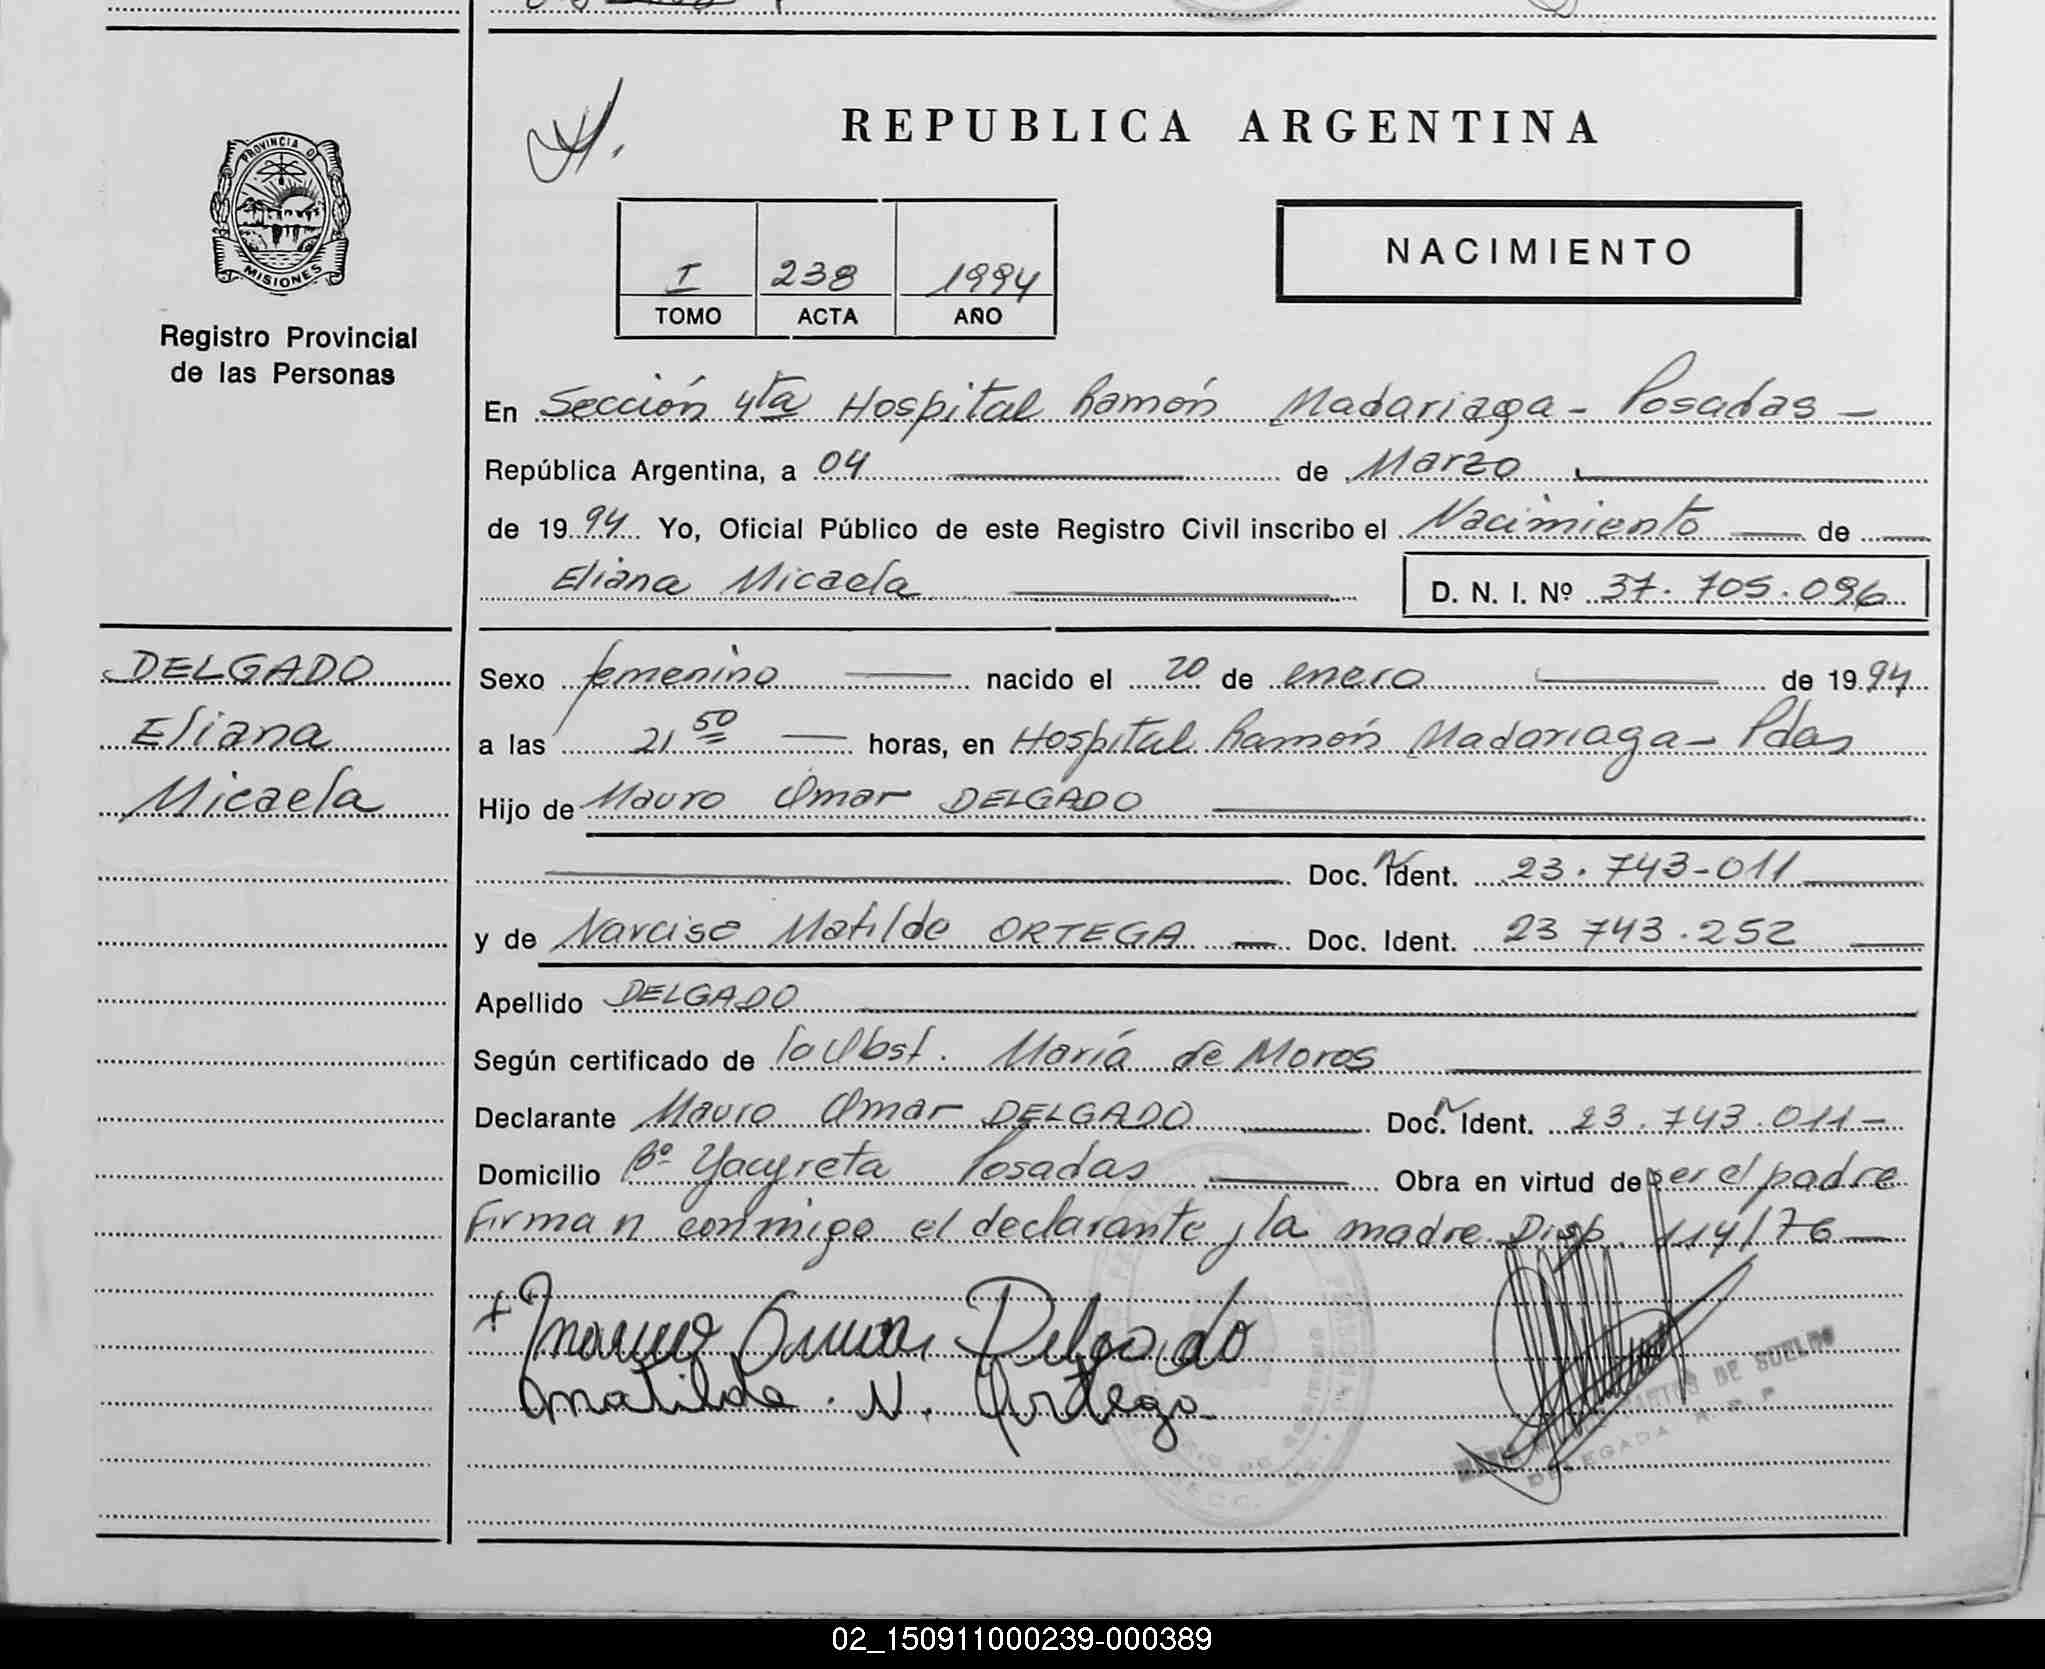 REPUBLICA ARGENTINA
PROVINCIA D
MISIONES
Registro Provincial
de las Personas
I 238 1994
TOMO ACTA AÑO
NACIMIENTO
En Sección 4ta Hospital Ramón Madariaga - Posadas -
República Argentina, a 04 de Marzo
de 1994 Yo, Oficial Público de este Registro Civil inscribo el Nacimiento de
Eliana Micaela D. N. I. Nº 37.705.096
DELGADO
Eliana
Micaela
Sexo femenino nacido el 20 de enero de 1994
a las 21 50 horas, en Hospital Ramón Madariaga - Pdas
Hijo de Mauro Omar DELGADO
Doc. Ident. 23.743-011
y de Narcisa Matilde ORTEGA Doc. Ident. 23 743.252
Apellido DELGADO
Según certificado de la Obst. María de Moros
Declarante Mauro Omar DELGADO Doc. Ident. 23.743.011-
Domicilio Bº Yacyreta Posadas Obra en virtud de ser el padre
Firman conmigo el declarante y la madre. Disp. 114/76
Mauro Omar Delgado
Matilde. N. Ortega
DE SUELDO
DELEGADA
02_150911000239-000389